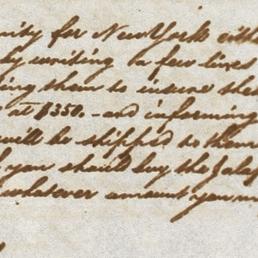 nity for New York eith
by writing a few lines
ing them to insure the
at $350. - and informing
will be shipped to them
you should buy the Jalap
whatever amount you m